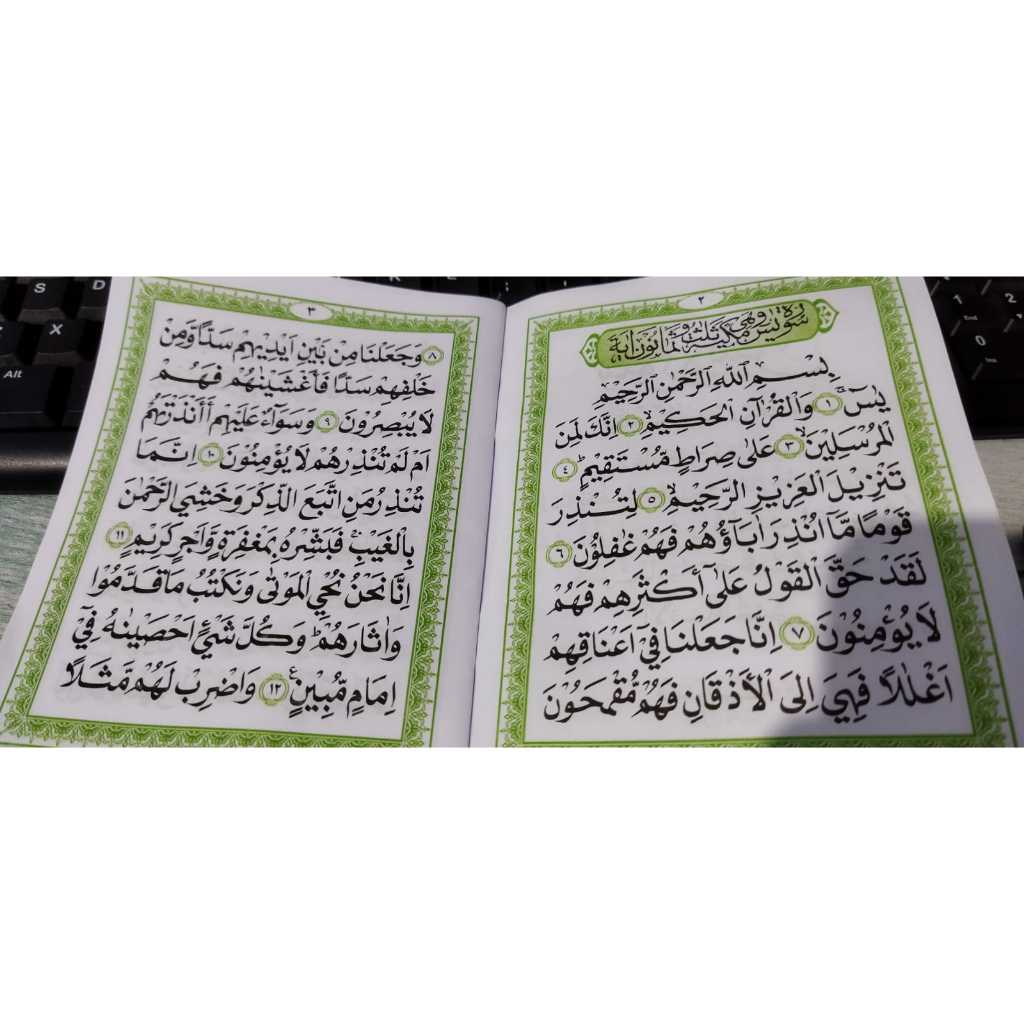 ٢
سورة يس وهي مكية ثلاث وثمانون آية
بِسْمِ اللهِ الرَّحْمٰنِ الرَّحِيْمِ
يٰسۤ ١ وَالْقُرْآنِ الْحَكِيْمِ ٢ اِنَّكَ لَمِنَ
الْمُرْسَلِيْنَ ٣ عَلٰى صِرَاطٍ مُّسْتَقِيْمٍ ٤
تَنْزِيْلَ الْعَزِيْزِ الرَّحِيْمِ ٥ لِتُنْذِرَ
قَوْمًا مَّآ اُنْذِرَ اٰبَآؤُهُمْ فَهُمْ غٰفِلُوْنَ ٦
لَقَدْ حَقَّ الْقَوْلُ عَلٰٓى أَكْثَرِهِمْ فَهُمْ
لَا يُؤْمِنُوْنَ ٧ اِنَّا جَعَلْنَا فِيْٓ اَعْنَاقِهِمْ
اَغْلٰلًا فَهِيَ اِلَى الْاَذْقَانِ فَهُمْ مُّقْمَحُوْنَ
٣
٨ وَجَعَلْنَا مِنْ بَيْنِ اَيْدِيْهِمْ سَدًّا وَّمِنْ
خَلْفِهِمْ سَدًّا فَاَغْشَيْنٰهُمْ فَهُمْ
لَا يُبْصِرُوْنَ ٩ وَسَوَآءٌ عَلَيْهِمْ أَأَنْذَرْتَهُمْ
اَمْ لَمْ تُنْذِرْهُمْ لَا يُؤْمِنُوْنَ ١٠ اِنَّمَا
تُنْذِرُ مَنِ اتَّبَعَ الذِّكْرَ وَخَشِيَ الرَّحْمٰنَ
بِالْغَيْبِ فَبَشِّرْهُ بِمَغْفِرَةٍ وَّاَجْرٍ كَرِيْمٍ ١١
اِنَّا نَحْنُ نُحْيِ الْمَوْتٰى وَنَكْتُبُ مَا قَدَّمُوْا
وَاٰثَارَهُمْ وَكُلَّ شَيْءٍ اَحْصَيْنٰهُ فِيْٓ
اِمَامٍ مُّبِيْنٍ ١٢ وَاضْرِبْ لَهُمْ مَّثَلًا
S
D
X
Alt
K
1
2
0
Ins